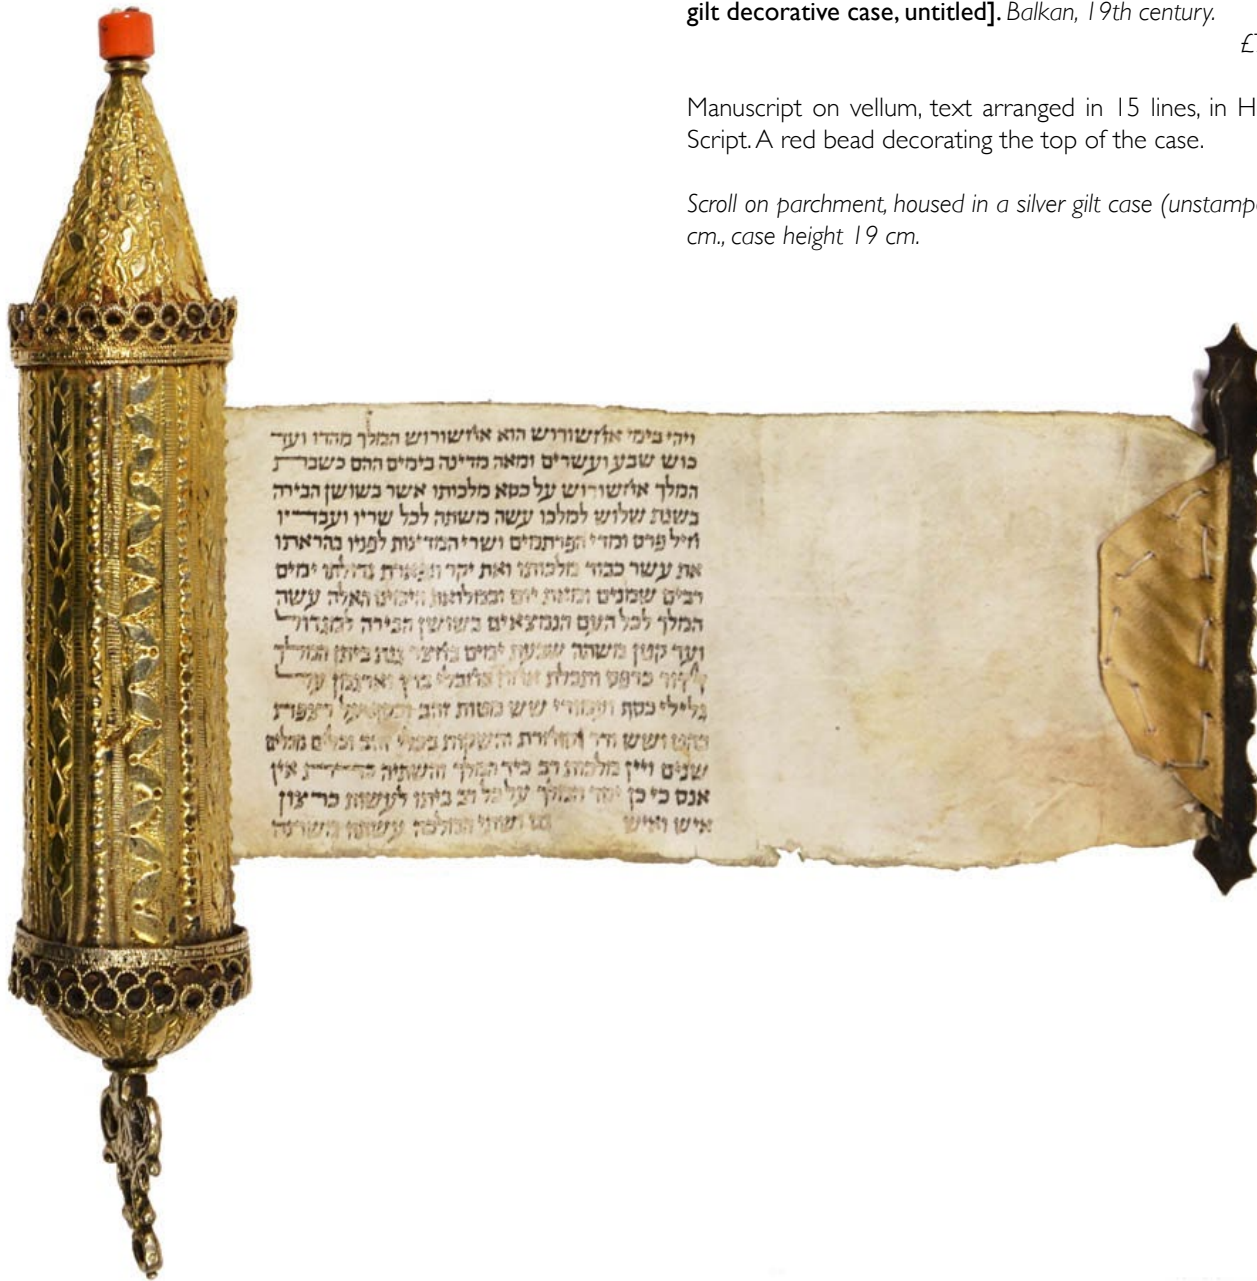 gilt decorative case, untitled]. Balkan, 19th century.
Manuscript on vellum, text arranged in 15 lines, in
Script. A red bead decorating the top of the case.
Scroll on parchment, housed in a silver gilt case
cm., case height 19 cm.
ויהי בימי אחשורוש הוא אחשורוש המלך מהדו ועד
כוש שבע ועשרים ומאה מדינה בימים ההם כשבת
המלך אחשורוש על כסא מלכותו אשר בשושן הבירה
בשנת שלוש למלכו עשה משתה לכל שריו ועבדיו
חיל פרס ומדי הפרתמים ושרי המדינות לפניו בהראתו
את עשר כבוד מלכותו ואת יקר תפארת גדולתו ימים
רבים שמנים ומאת יום ובמלואת הימים האלה עשה
המלך לכל העם הנמצאים בשושן הבירה למגדול
ועד קטן משתה שבעת ימים בחצר גנת ביתן המלך
כרפס ותכלת אחוז בחבלי בוץ וארגמן על
גלילי כסף ועמודי שש מטות זהב וכסף על רצפת
בהט ושש ודר וסחרת והשקות בכלי זהב וכלים מכלים
שונים ויין מלכות רב כיד המלך והשתיה כדת אין
אנס כי כן יסד המלך על כל רב ביתו לעשות כרצון
איש ואיש גם ושתי המלכה עשתה משתה